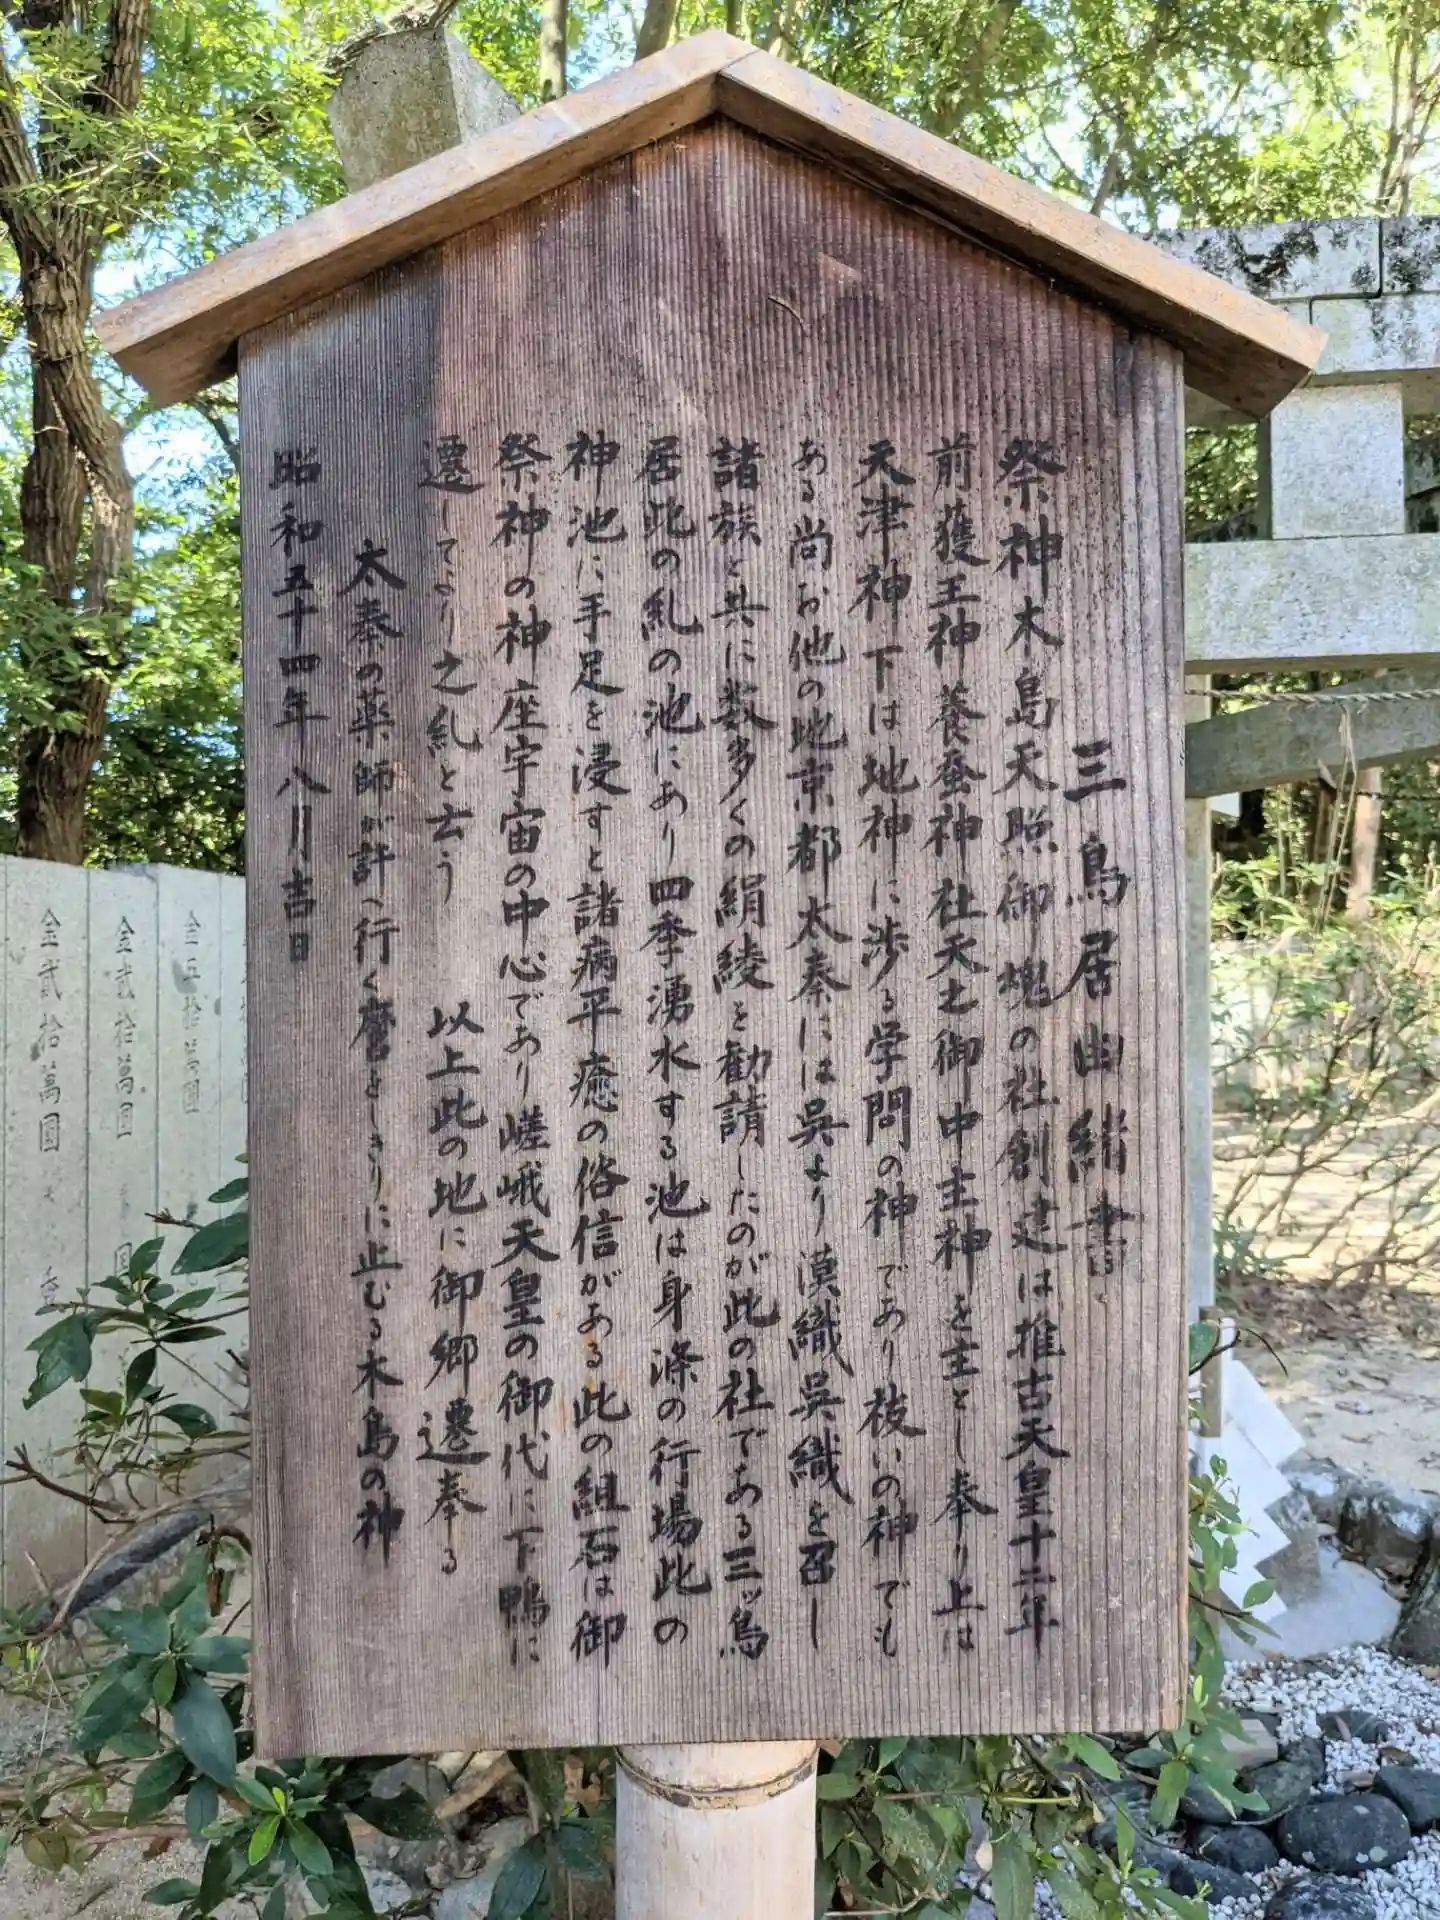 三鳥居由緒書
祭神木島天照御魂の社創建は推古天皇十二年
前獲王神養蚕神社天之御中主神を主とし奉り上は
天津神下は地神に渉る学問の神であり祓いの神でも
ある尚お他の地京都太秦には呉より漢織呉織を召し
諸族と共に数多くの絹綾を勧請したのが此の社である三ッ鳥
居此の糺の池にあり四季湧水する池は身滌の行場此の
神池に手足を浸すと諸病平癒の俗信がある此の組石は御
祭神の神座宇宙の中心であり嵯峨天皇の御代に下鴨に
遷してより之糺と云う　以上此の地に御郷遷奉る
太秦の薬師が許へ行く麿をしきりに止むる木島の神
昭和五十四年八月吉日
金貳拾萬圓
金貳拾萬圓
金五拾萬圓